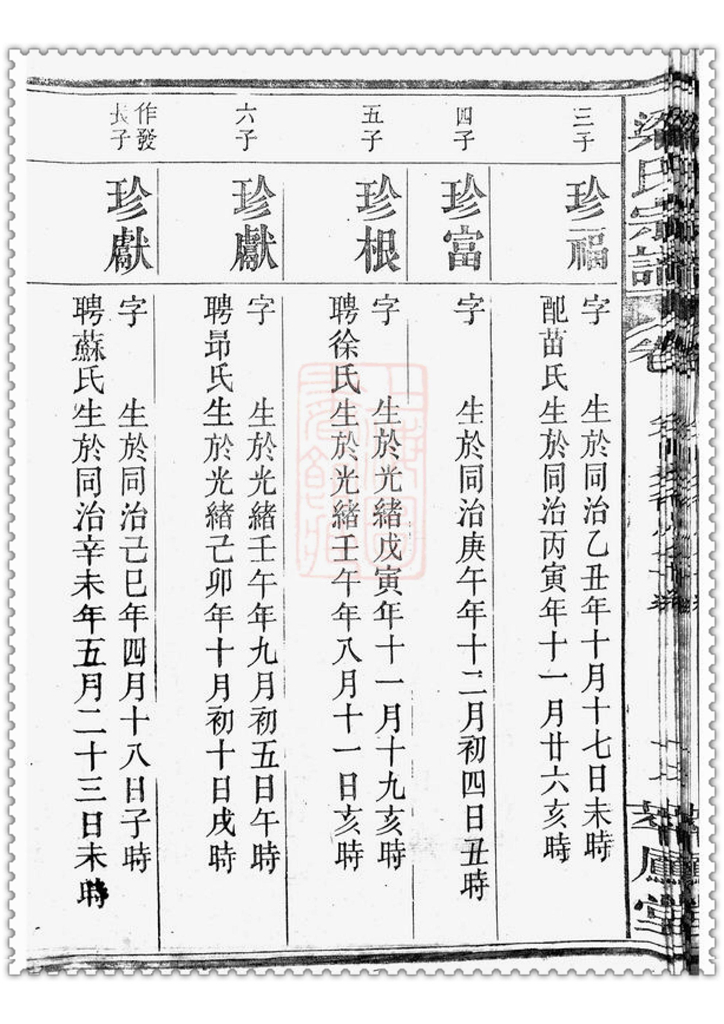 梁氏宗譜
卷
三子
珍福
字 生於同治乙丑年十月十七日未時
配苗氏生於同治丙寅年十一月廿六亥時
四子
珍富
字 生於同治庚午年十二月初四日丑時
五子
珍根
字 生於光緒戊寅年十一月十九亥時
聘徐氏生於光緒壬午年八月十一日亥時
六子
珍獻
字 生於光緒壬午年九月初五日午時
聘昻氏生於光緒己卯年十月初十日戌時
作發
長子
珍獻
字 生於同治己巳年四月十八日子時
聘蘇氏生於同治辛未年五月二十三日未時